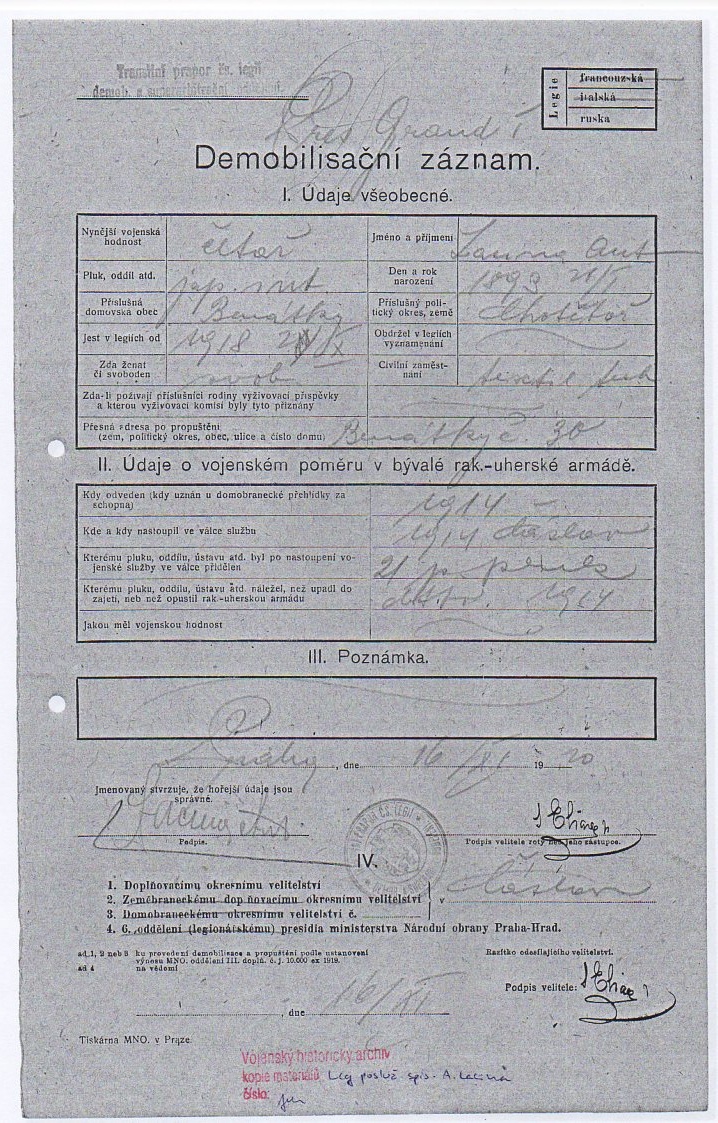 Transitní prapor čs. legií
demob. a superarbitrační oddělení
Legie
francouzská
italská
ruska
Pres. Grand I
Demobilisační záznam.
I. Údaje všeobecné.
Nynější vojenská hodnost četař Jméno a příjmení Lacina Ant
Pluk, oddíl atd. jap. int Den a rok narození 1893 21/I
Příslušná domovská obec Benátky Příslušný politický okres, země Chotěboř
Jest v legiích od 1918 IX Obdržel v legiích vyznamenání
Zda ženat či svoboden svob Civilní zaměstnání textil
Zda-li požívají příslušníci rodiny vyživovací příspěvky
a kterou vyživovací komisí byly tyto přiznány
Přesná adresa po propuštění
(zem, politický okres, obec, ulice a číslo domu) Benátky č. 30
II. Údaje o vojenském poměru v bývalé rak.-uherské armádě.
Kdy odveden (kdy uznán u domobranecké přehlídky za
schopna) 1914
Kde a kdy nastoupil ve válce službu 1914 Čáslav
Kterému pluku, oddílu, ústavu atd. byl po nastoupení vo-
jenské služby ve válce přidělen 21 p.
Kterému pluku, oddílu, ústavu atd. náležel, než upadl do
zajetí, neb než opustil rak.-uherskou armádu 1914
Jakou měl vojenskou hodnost
III. Poznámka.
Prahy, dne 16/XI 19 20
Jmenovaný stvrzuje, že hořejší údaje jsou
správné.
Lacina Ant
Podpis.
Podpis velitele roty neb jeho zástupce.
IV.
1. Doplňovacímu okresnímu velitelství
2. Zeměbraneckému doplňovacímu okresnímu velitelství v Čáslavi
3. Domobraneckému okresnímu velitelství č.
4. 6. oddělení (legionářskému) presidia ministerstva Národní obrany Praha-Hrad.
ad 1, 2 neb 3 ku provedení demobilisace a propuštění podle ustanovení
výnosu MNO. oddělení III. doplň. č. j. 10.000 ex 1919.
ad 4 na vědomí
Razítko odesílajícího velitelství.
Podpis velitele:
, dne 16/XI
Tiskárna MNO. v Praze.
Vojenský historický archiv
kopie materiálů Leg posluž. spis - A. Lacina
číslo: